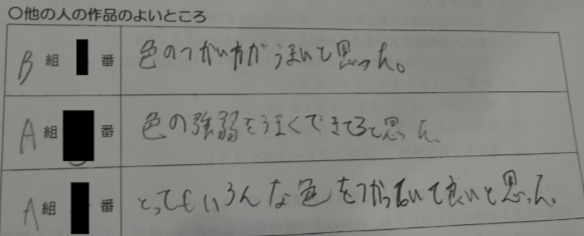 ○他の人の作品のよいところ
B組 番 色のつかい方がうまいと思った。
A組 番 色の強弱をうまくできてると思った。
A組 番 とってもいろんな色をつかっていて良いと思った。